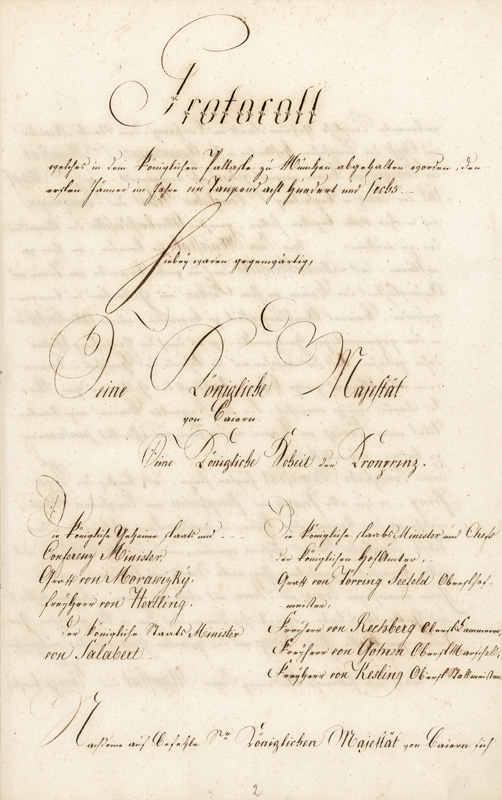 Protocoll
welches in dem Königlichen Pallaste zu München abgehalten worden, den
ersten Jänner im Jahre ein Tausend acht hundert und sechs.
Hiebey waren gegenwärtig,
Seine Königliche Majestät
von Baiern.
Seine Königliche Hoheit der Kronprinz.
Die königliche Geheime Staats und
Conferenz Minister
Graff von Morawizky.
Freyherr von Hertling.
der königliche Staats Minister
von Salabert
Die königliche Staats Minister und Chefs
der königlichen Hof Aemter,
Graff von Törring Seefeld Obersthof-
meister,
Freyherr von Rechberg Oberst Kammerer,
Freyherr von Gohren Oberst Marschall,
Freyherr von Kesling Oberst Stallmeister
Nachdeme auf Befehle Sr Königlichen Majestät von Baiern sich
2